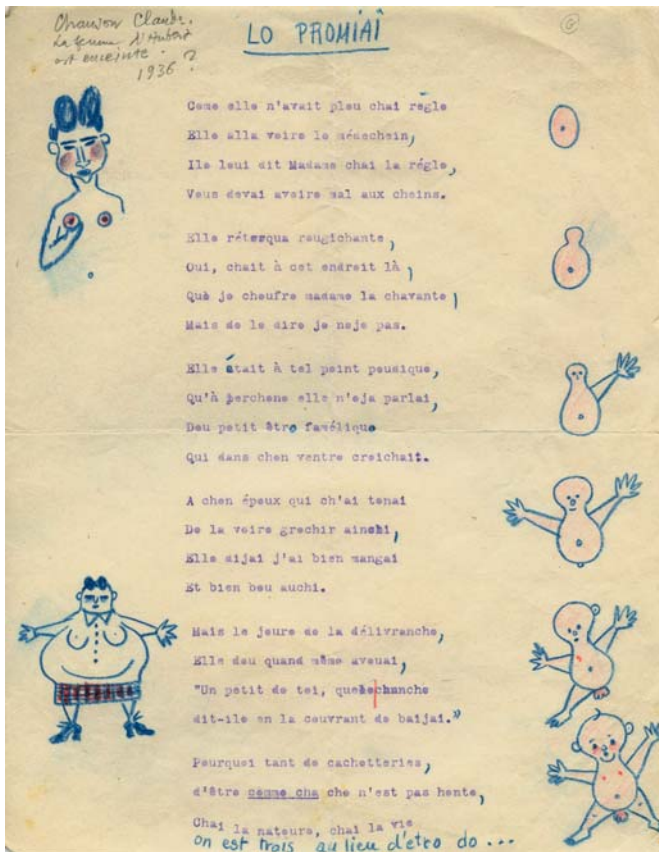 Chanson Claude.
La femme d'Hubert
est enceinte.
1936 ?
LO PROMIAÎ
Come elle n'avait pleu chai règle
Elle alla voire le médechein,
Ile leui dit Madame chai la régle,
Vous devai avoire mal aux cheins.
Elle rétorqua reugichante,
Oui, chait à cet endroit là,
Què je cheufre madame la chavante,
Mais de le dire je n'oje pas.
Elle était à tel point peudique,
Qu'à perchone elle n'oja parlai,
Dou petit être famélique
Qui dans chon ventre croichait.
A chon époux qui ch'ai tonai
De la voire grochir ainchi,
Elle dijai j'ai bien mangai
Et bien bou auchi.
Mais le joure de la délivranche,
Elle dou quand même avouai,
"Un petit de toi, quele chanche
dit-ile en la couvrant de baijai."
Pourquoi tant de cachotteries,
d'être comme cha che n'est pas honte,
Chai la natoure, chai la vie
on est trois au lieu d'etro do ...